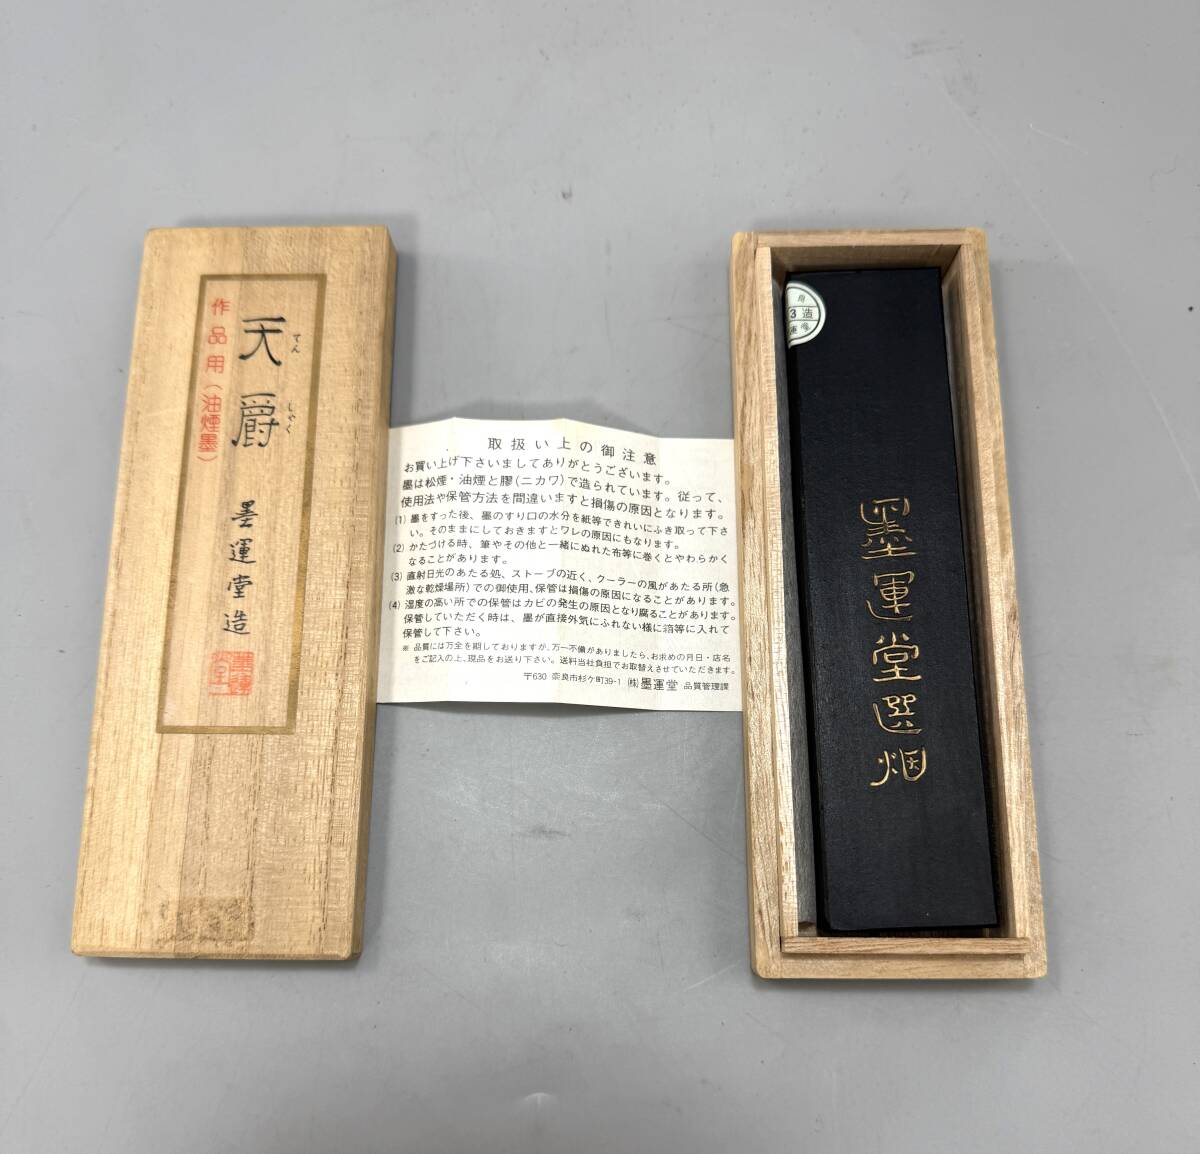 天爵
てん
しゃく
作品用(油煙墨)
墨運堂造
取扱い上の御注意
お買い上げ下さいましてありがとうございます。
墨は松煙・油煙と膠(ニカワ)で造られています。従って、
使用法や保管方法を間違いますと損傷の原因となります。
(1) 墨をすった後、墨のすり口の水分を紙等できれいにふき取って下さ
い。そのままにしておきますとワレの原因にもなります。
(2) かたづける時、筆やその他と一緒にぬれた布等に巻くとやわらかく
なることがあります。
(3) 直射日光のあたる処、ストーブの近く、クーラーの風があたる所(急
激な乾燥場所)での御使用、保管は損傷の原因になることがあります。
(4) 湿度の高い所での保管はカビの発生の原因となり腐ることがあります。
保管していただく時は、墨が直接外気にふれない様に箱等に入れて
保管して下さい。
※ 品質には万全を期しておりますが、万一不備がありましたら、お求めの月日・店名
をご記入の上、現品をお送り下さい。送料当社負担でお取替えさせていただきます。
〒630 奈良市杉ケ町39-1 (株)墨運堂 品質管理課
3 造
墨運堂選烟